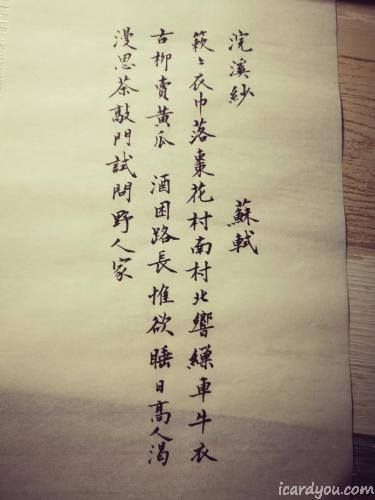 浣溪紗 蘇軾
簌〻衣巾落棗花村南村北響繅車牛衣
古柳賣黃瓜 酒困路長惟欲睡日高人渴
漫思茶敲門試問野人家
icardyou.com